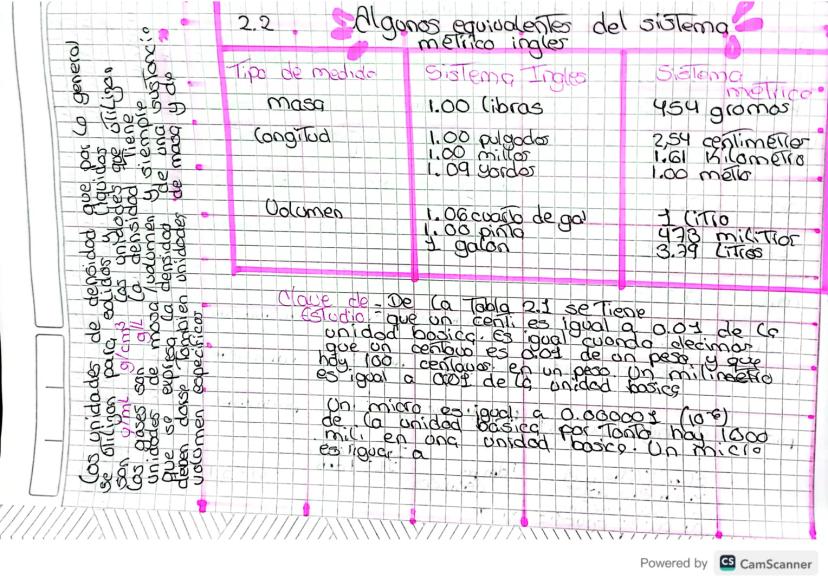 2.2 Algunos equivalentes del sistema
métrico ingles
Tipo de medida Sistema Ingles Sistema
metrico
masa 1.00 libras 454 gramos
Longitud 1.00 pulgadas 2,54 centimetros
1.00 millas 1.61 Kilometro
1.09 yardas 1.00 metro
Volumen 1.06 cuarto de gal 1 litro
1.00 pinta 473 mililitros
1 galon 3.79 Litros
Clave de - De la Tabla 2.1 se tiene
Estudio - que un centi es igual a 0.01 de la
unidad basica. es igual cuando decimos
que un centavo es 0.01 de un peso, y que
hay 100 centavos en un peso. Un milimetro
es igual a 0.01 de la unidad basica
Un micro es igual a 0.000001 (10-6)
de la unidad básica por tanto hay 1000
mili en una unidad basica. Un micro
es liguar a
Las unidades de densidad que por lo general
se utilizan para solidos y liquidos
son g/mL g/cm3 Las unidades que utilizan
los gases son g/L La densidad tiene
unidades de masa/volumen y siempre
que se expresa la densidad de una sustancia
deben darse tambien unidades de masa y de
volumen especificas
Powered by CS CamScanner